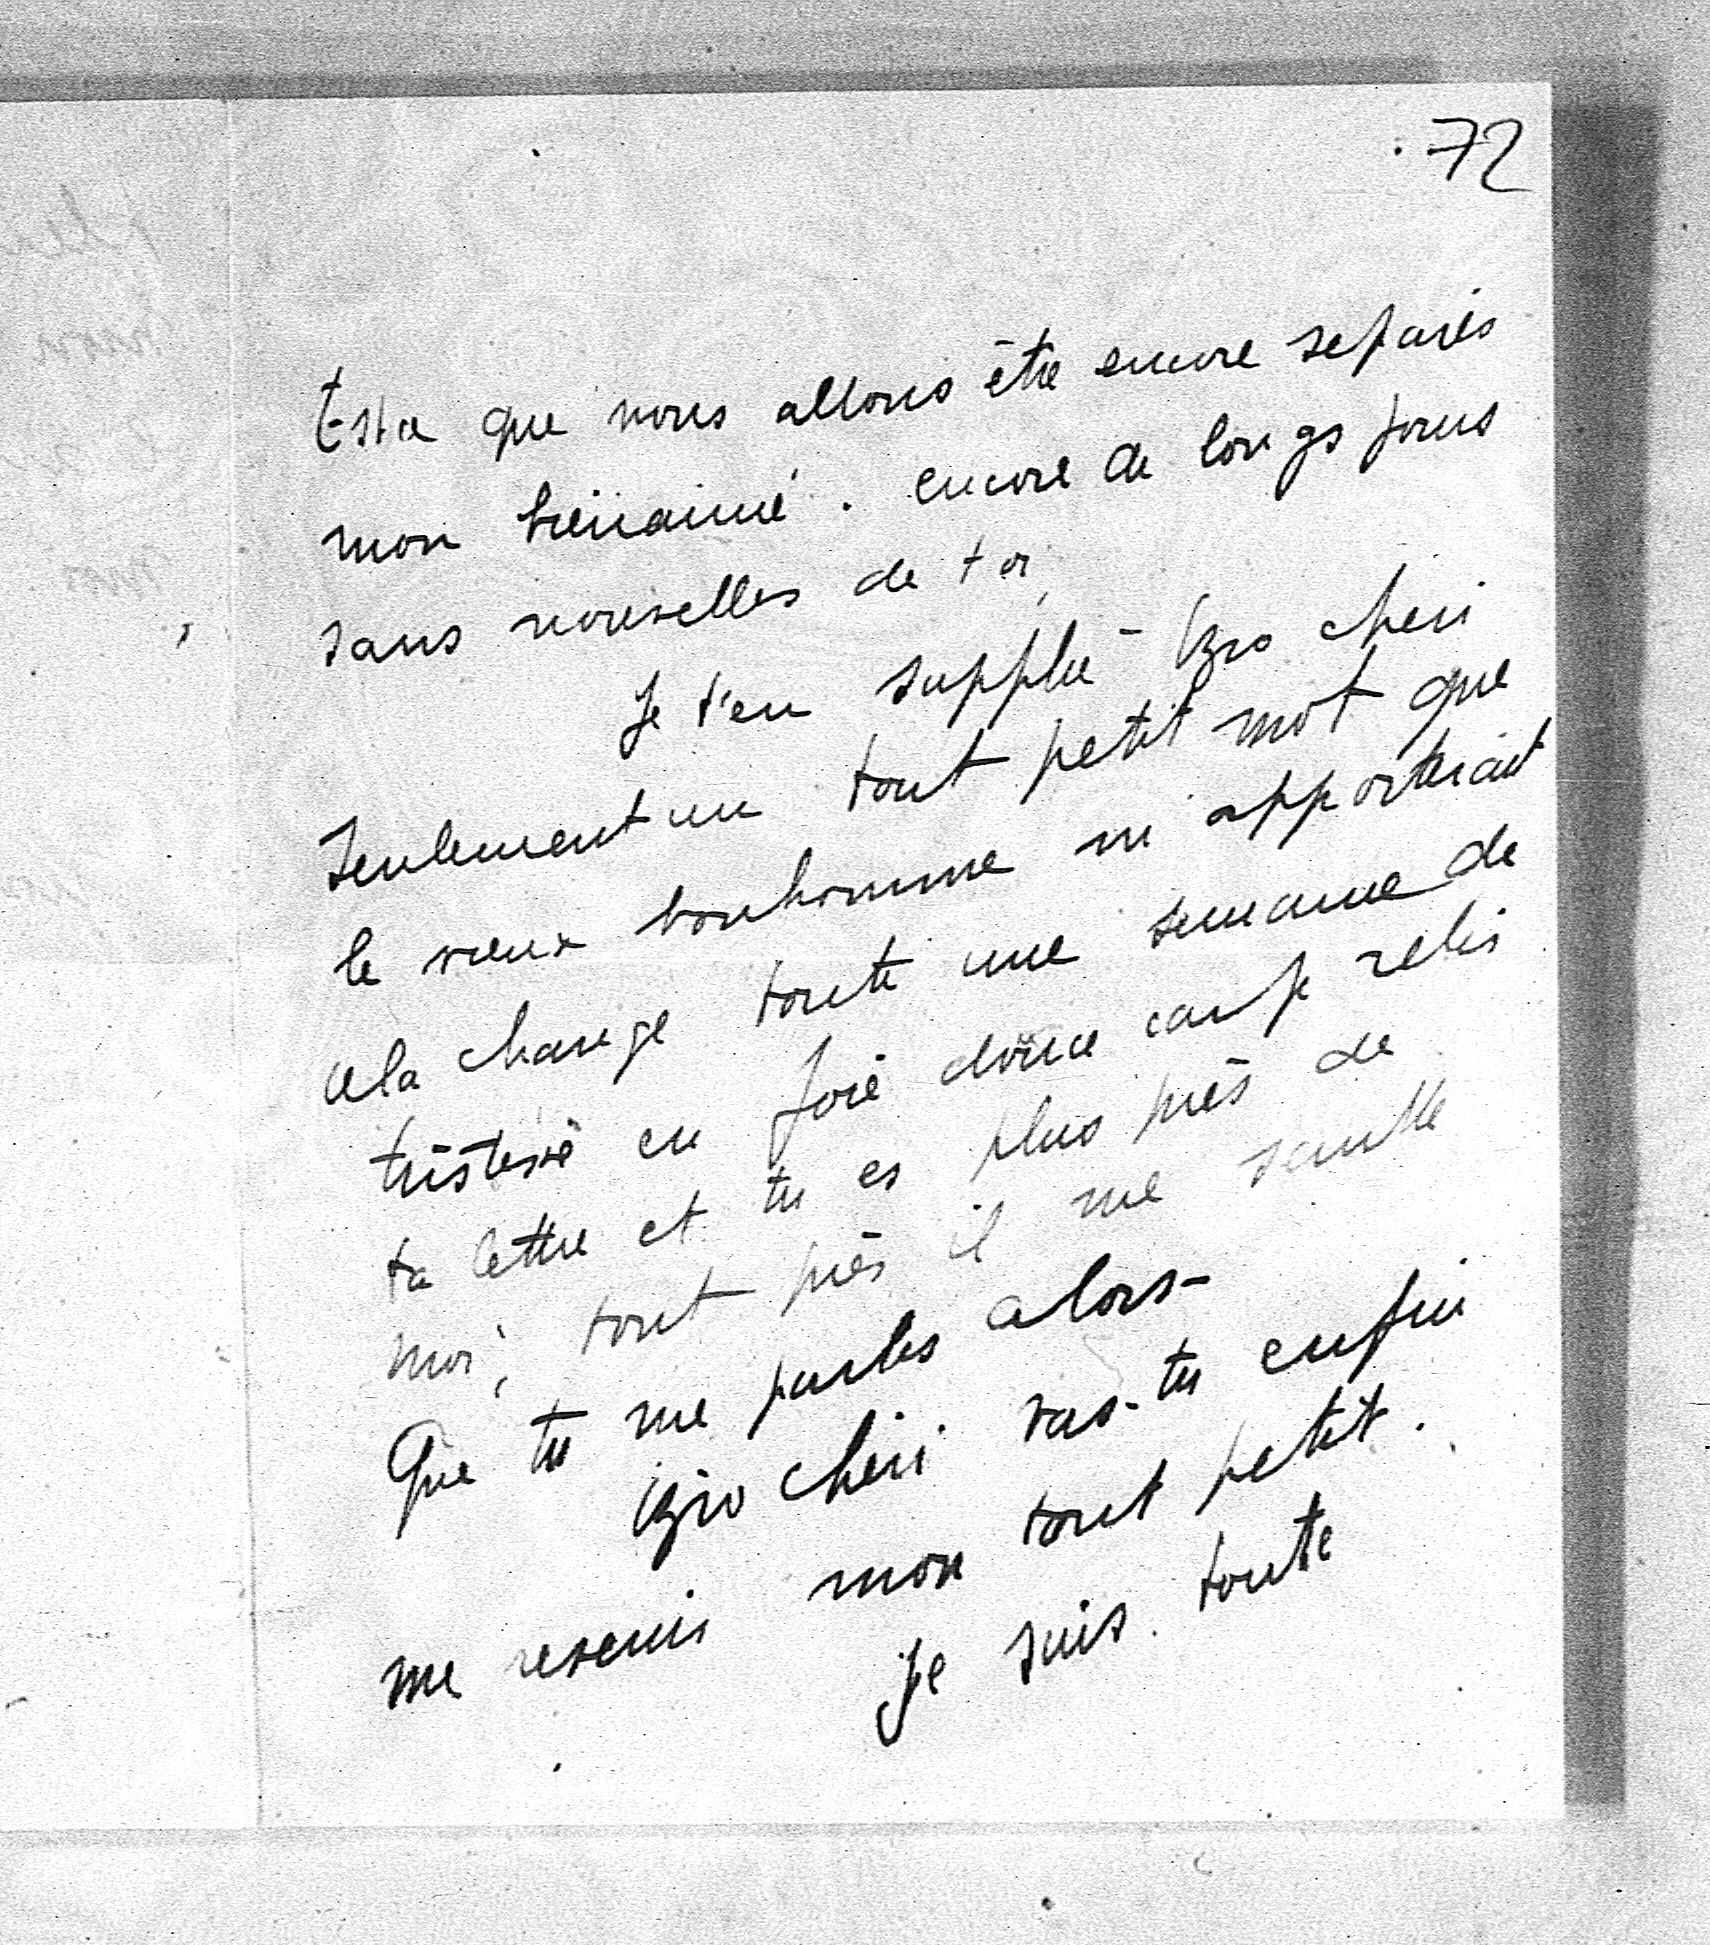 72
Est ce que nous allons être encore separés
mon bienaimé. encore de longs jours
sans nouvelles de toi
Je t'en supplie - Gro cheri
seulement un tout petit mot que
le vieux bonhomme m'apporterait
cela change toute une semaine de
tristesse en joie douce car je relis
ta lettre et tu es plus près de
moi, tout près il me semble
Que tu me parles alors -
Gro cheri vas-tu enfin
me revenir mon tout petit.
Je suis toute